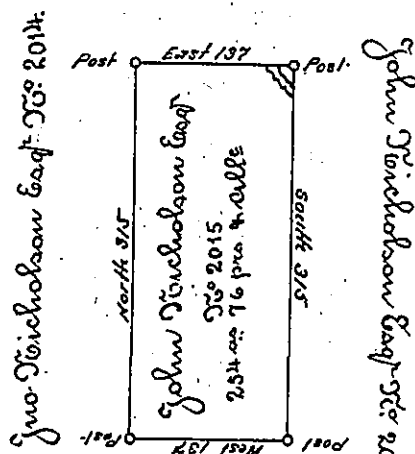 Jno. Nicholson Esqr. No. 2014.
Post
East 137
Post.
North 315
John Nicholson Esqr.
No. 2015
254 as 76 prs & Allce
South 315
Post
West 137
Post
John Nicholson Esqr. No.